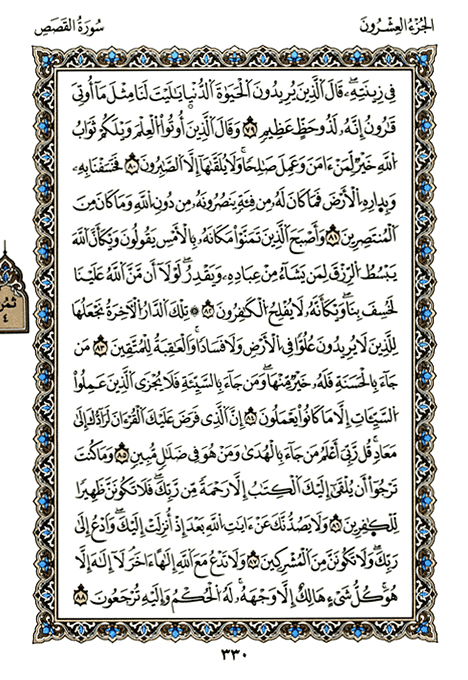 الجُزْءُ العِشْرُونَ
سُورَةُ القَصَصِ
فِي زِينَتِهِۦ قَالَ الَّذِينَ يُرِيدُونَ الْحَيَوٰةَ الدُّنْيَا يَٰلَيْتَ لَنَا مِثْلَ مَا أُوتِيَ
قَٰرُونُ إِنَّهُۥ لَذُو حَظٍّ عَظِيمٍ ٧٩ وَقَالَ الَّذِينَ أُوتُوا الْعِلْمَ وَيْلَكُمْ ثَوَابُ
اللَّهِ خَيْرٌ لِّمَنْ ءَامَنَ وَعَمِلَ صَٰلِحًا وَلَا يُلَقَّىٰهَا إِلَّا الصَّٰبِرُونَ ٨٠ فَخَسَفْنَا بِهِۦ
وَبِدَارِهِ الْأَرْضَ فَمَا كَانَ لَهُۥ مِن فِئَةٍ يَنصُرُونَهُۥ مِن دُونِ اللَّهِ وَمَا كَانَ مِنَ
الْمُنتَصِرِينَ ٨١ وَأَصْبَحَ الَّذِينَ تَمَنَّوْا مَكَانَهُۥ بِالْأَمْسِ يَقُولُونَ وَيْكَأَنَّ اللَّهَ
يَبْسُطُ الرِّزْقَ لِمَن يَشَآءُ مِنْ عِبَادِهِۦ وَيَقْدِرُ لَوْلَا أَن مَّنَّ اللَّهُ عَلَيْنَا
لَخُسِفَ بِنَا وَيْكَأَنَّهُۥ لَا يُفْلِحُ الْكَٰفِرُونَ ٨٢ ۞ تِلْكَ الدَّارُ الْآخِرَةُ نَجْعَلُهَا
لِلَّذِينَ لَا يُرِيدُونَ عُلُوًّا فِي الْأَرْضِ وَلَا فَسَادًا وَالْعَٰقِبَةُ لِلْمُتَّقِينَ ٨٣ مَن
جَآءَ بِالْحَسَنَةِ فَلَهُۥ خَيْرٌ مِّنْهَا وَمَن جَآءَ بِالسَّيِّئَةِ فَلَا يُجْزَى الَّذِينَ عَمِلُوا
السَّيِّـَٔاتِ إِلَّا مَا كَانُوا يَعْمَلُونَ ٨٤ إِنَّ الَّذِي فَرَضَ عَلَيْكَ الْقُرْءَانَ لَرَآدُّكَ إِلَىٰ
مَعَادٍ قُل رَّبِّي أَعْلَمُ مَن جَآءَ بِالْهُدَىٰ وَمَنْ هُوَ فِي ضَلَٰلٍ مُّبِينٍ ٨٥ وَمَا كُنتَ
تَرْجُوا أَن يُلْقَىٰ إِلَيْكَ الْكِتَٰبُ إِلَّا رَحْمَةً مِّن رَّبِّكَ فَلَا تَكُونَنَّ ظَهِيرًا
لِّلْكَٰفِرِينَ ٨٦ وَلَا يَصُدُّنَّكَ عَنْ ءَايَٰتِ اللَّهِ بَعْدَ إِذْ أُنزِلَتْ إِلَيْكَ وَادْعُ إِلَىٰ
رَبِّكَ وَلَا تَكُونَنَّ مِنَ الْمُشْرِكِينَ ٨٧ وَلَا تَدْعُ مَعَ اللَّهِ إِلَٰهًا ءَاخَرَ لَآ إِلَٰهَ إِلَّا
هُوَ كُلُّ شَيْءٍ هَالِكٌ إِلَّا وَجْهَهُۥ لَهُ الْحُكْمُ وَإِلَيْهِ تُرْجَعُونَ ٨٨
ثمن
٤
٣٣٠